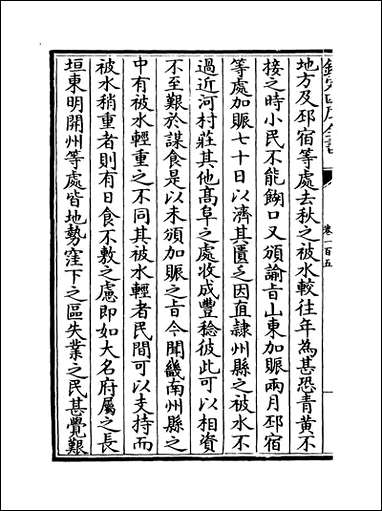 地方及邳宿等處去秋之被水較往年為甚恐青黃不
接之時小民不能餬口又頒諭㫖山東加賑兩月邳宿
等處加賑七十日以濟其匱乏因直隸州縣之被水不
過近河村莊其他髙阜之處收成豐稔彼此可以相資
不至艱於謀食是以未頒加賑之㫖今聞畿南州縣之
中有被水輕重之不同其被水輕者民間可以支持而
被水稍重者則有日食不敷之慮即如大名府屬之長
垣東明開州等處皆地勢窪下之區失業之民甚覺艱
卷一百五